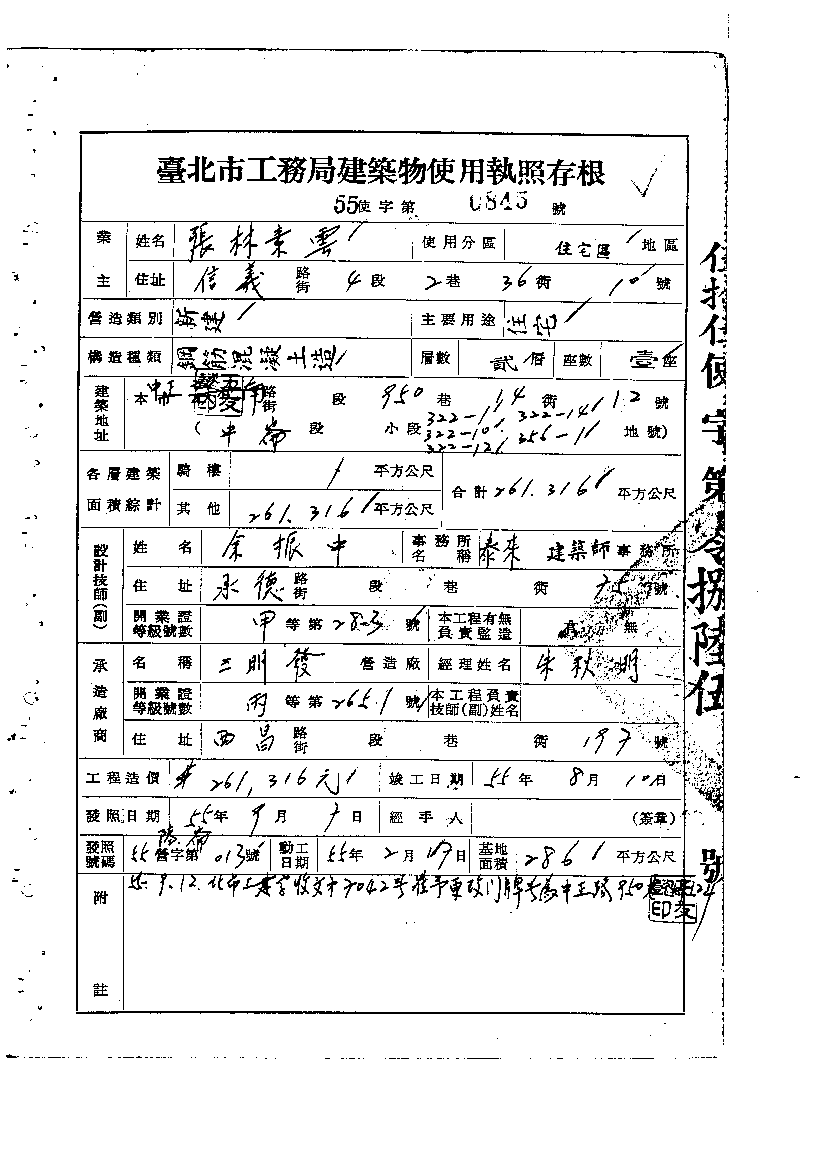 臺北市工務局建築物使用執照存根
55使字第 0845 號
業主 姓名 張林素雲 使用分區 住宅區 地區
住址 信義 路街 4 段 2 巷 36 街 10 號
營造類別 新建 主要用途 住宅
構造種類 鋼筋混凝土造 層數 貳層 座數 壹座
建築地址 本市 中正 路街 段 950 巷 14 街 12 號
(中崙 段 小段 322-11, 322-141 322-101, 356-11 322-121 地號)
各層建築面積綜計 騎樓 平方公尺 合計 261.316 平方公尺
其他 261.316 平方公尺
設計技師(副) 姓名 余振中 事務所名稱 泰來 建築師事務所
住址 承德 路街 段 巷 街 75 號
開業證等級號數 甲 等第 283 號 本工程有無負責監造 有 無
承造廠商 名稱 三明發 營造廠 經理姓名 朱秋明
開業證等級號數 丙 等第 265 號 本工程負責技師(副)姓名
住址 西昌 路街 段 巷 街 197 號
工程造價 261,316元 竣工日期 55年 8月 10日
發照日期 55年 9月 7日 經手人 (簽章)
發照號碼 55 營字第 013 號 動工日期 55年 2月 17日 基地面積 286 平方公尺
附註 55.9.12. 北市工建字收文 7042號 門牌 中正路950巷
伍拾伍使字第令捌陸伍號